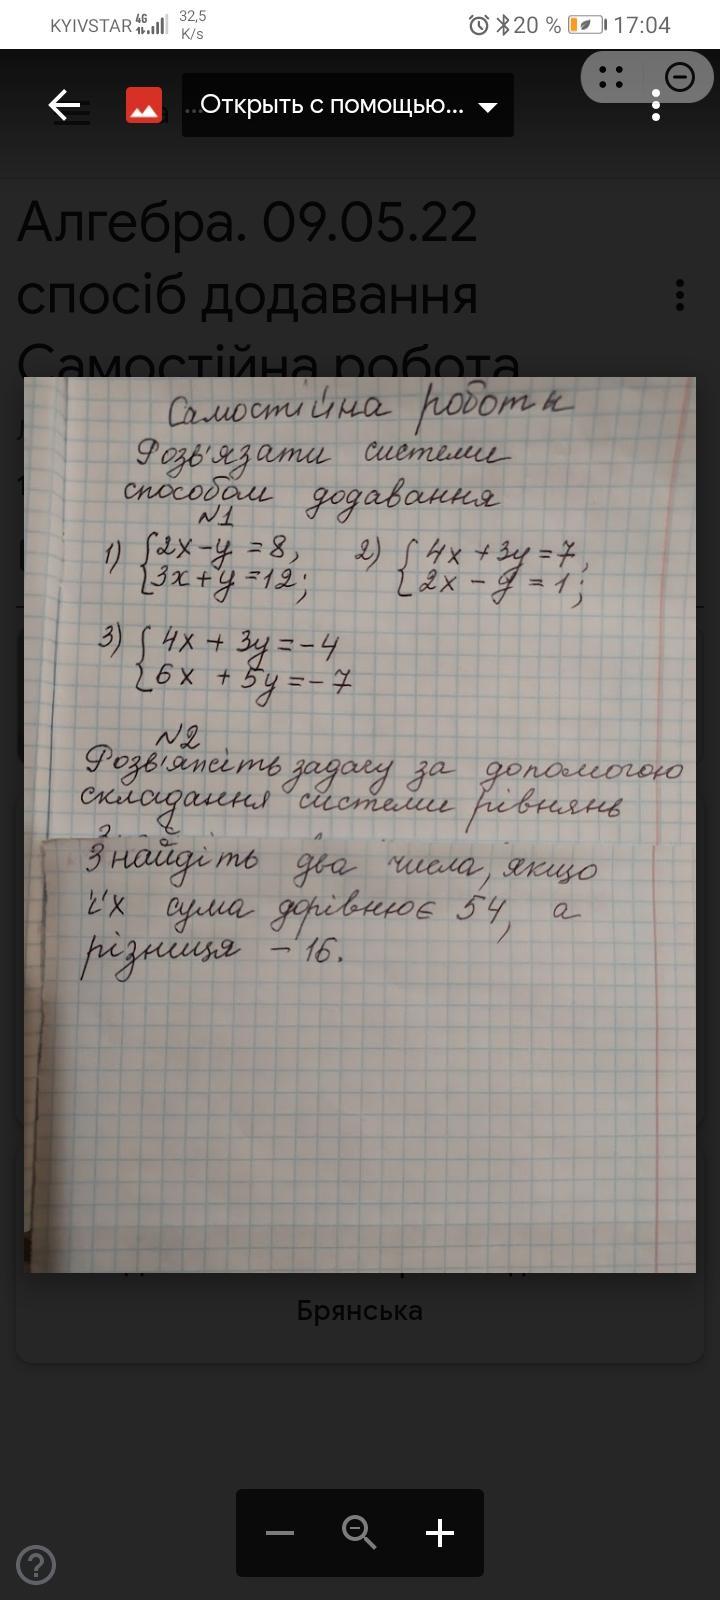 KYIVSTAR 4G 32,5 K/s 20 % 17:04
...Открыть с помощью...
Алгебра. 09.05.22
спосіб додавання
Самостійна робота
Самостійна робота
Розв'язати системи
способом додавання
№1
1) {2x-y =8, 2) { 4x +3y =7,
{3x+y =12; { 2x - y = 1;
3) { 4x + 3y = -4
{ 6x + 5y = -7
№2
Розв'яжіть задачу за допомогою
складання системи рівнянь
Знайдіть два числа, якщо
їх сума дорівнює 54, а
різниця - 16.
Брянська